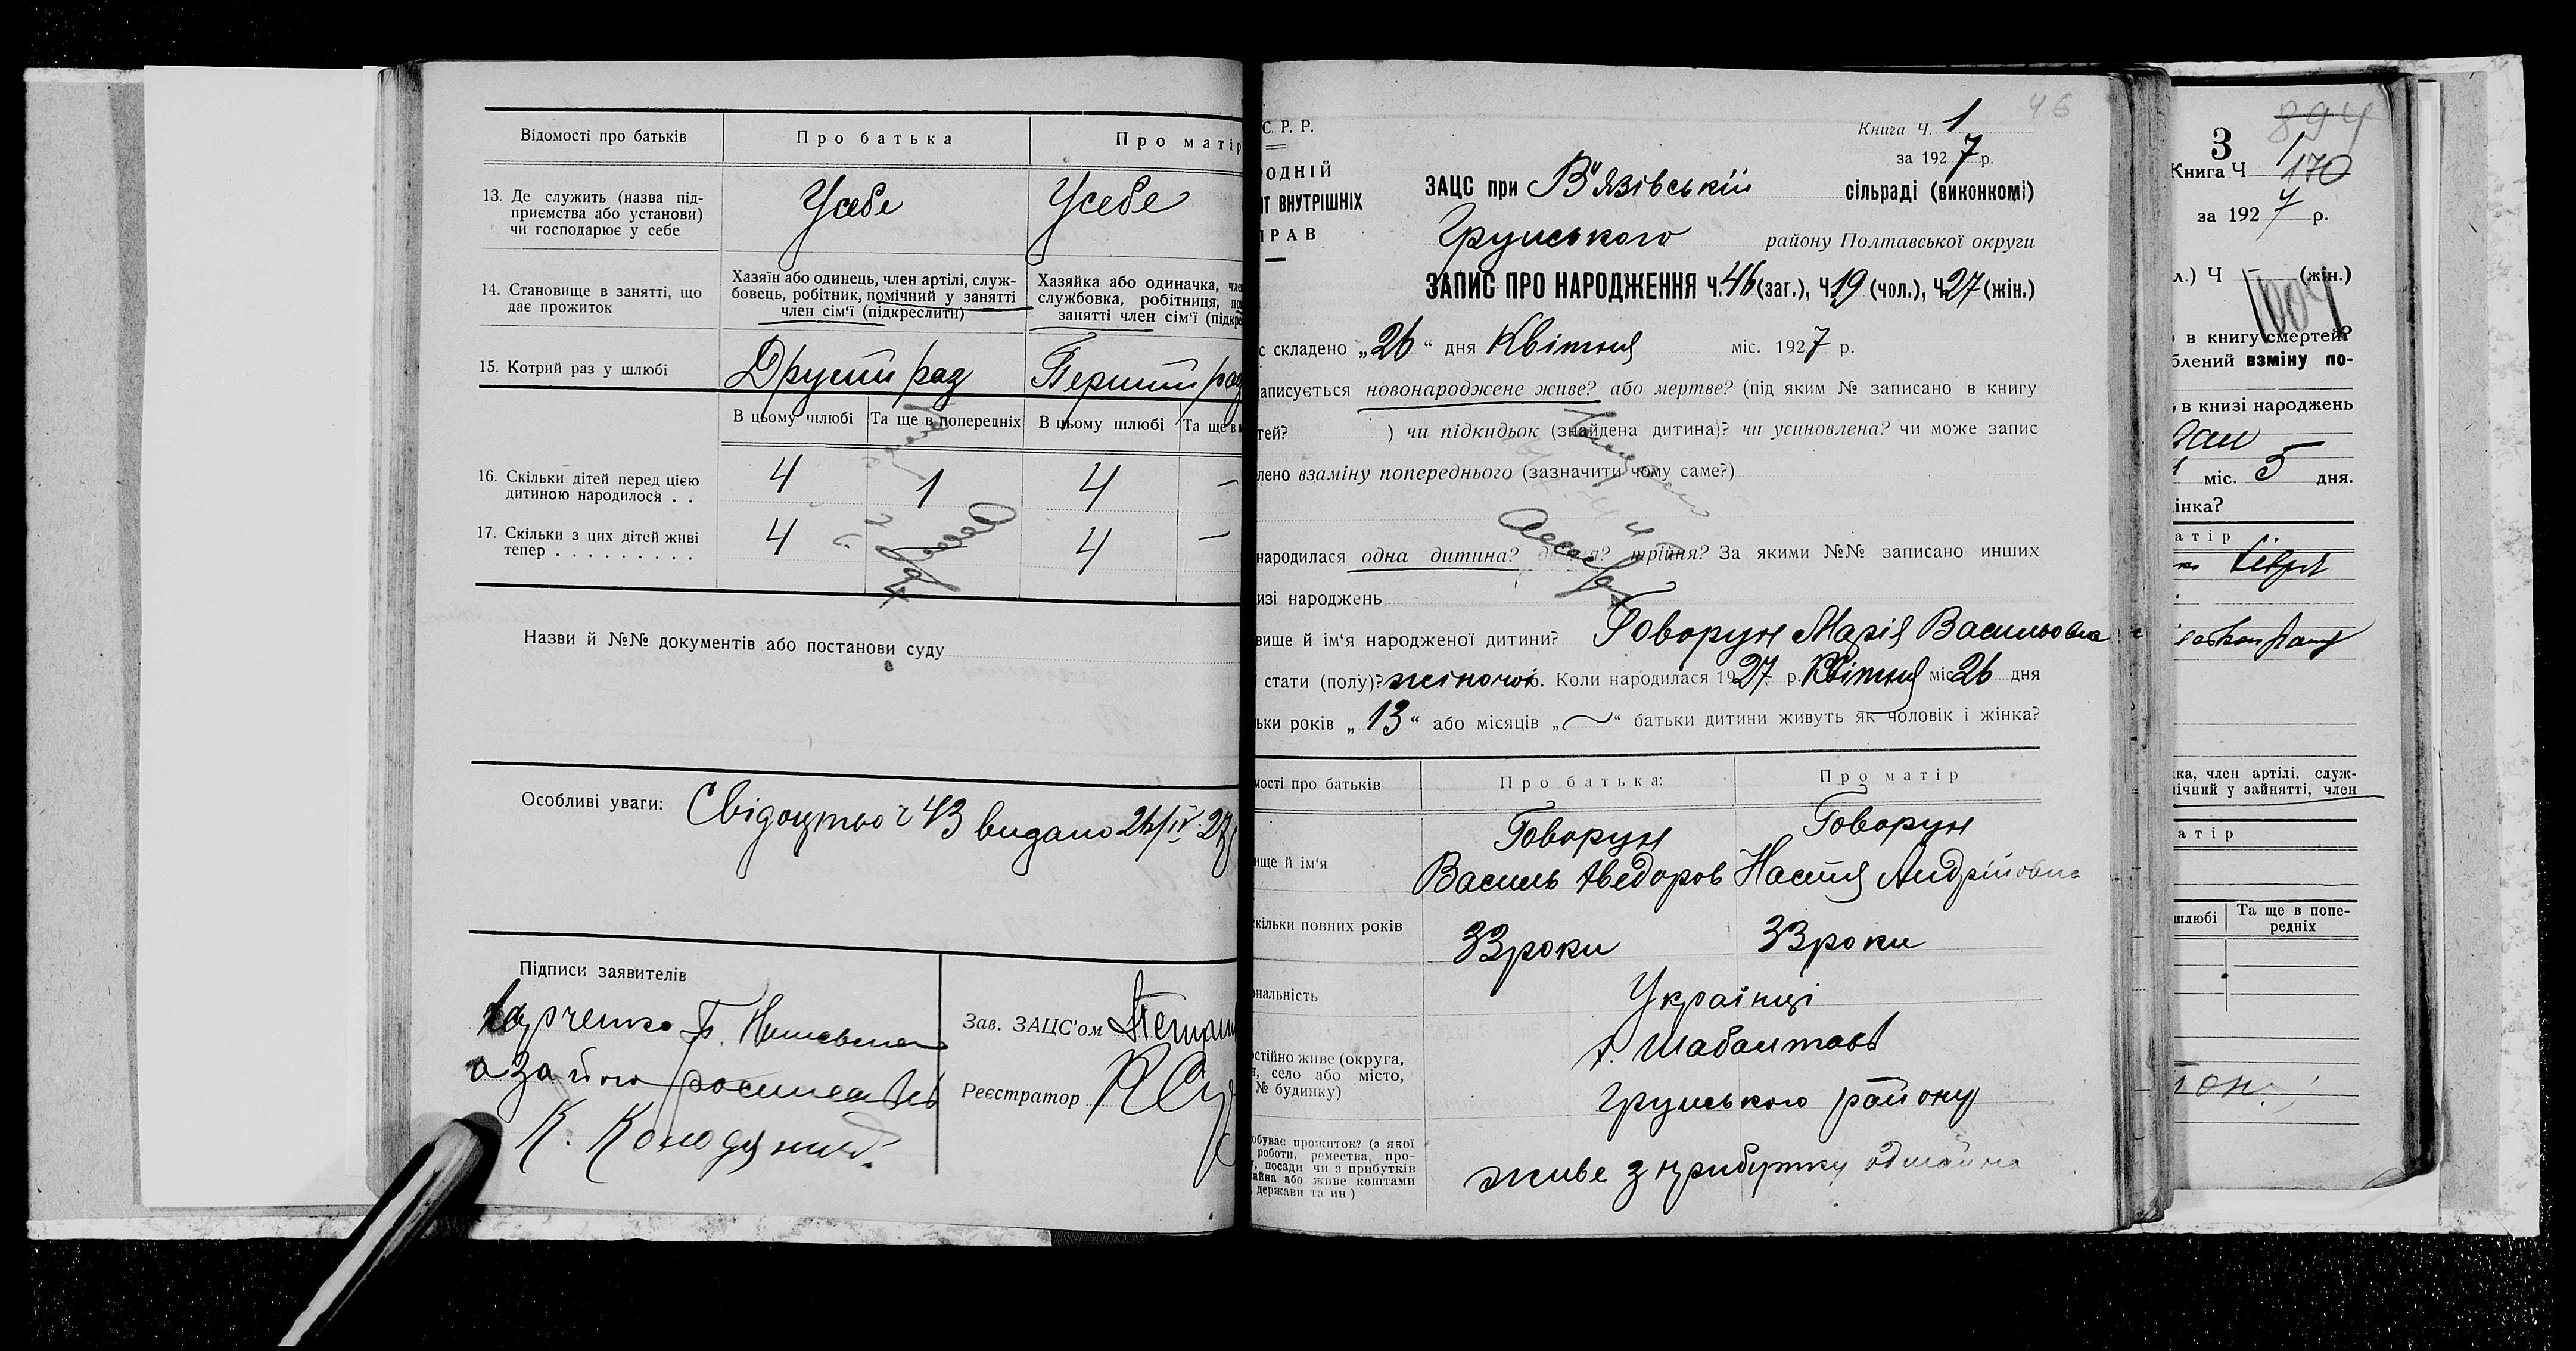 Відомості про батьків
Про батька
Про матір
13. Де служить (назва під-
приємства або установи)
чи господарює у себе
Усебе
Усебе
14. Становище в занятті, що
дає прожиток
Хазяїн або одинець, член артілі, служ-
бовець, робітник, помічний у занятті
член сім'ї (підкреслити)
Хазяйка або одиначка, чле
службовка, робітниця, по
занятті член сім'ї (підкре
15. Котрий раз у шлюбі
Другий раз
Перший раз
В цьому шлюбі
Та ще в попередніх
В цьому шлюбі
Та ще в п
16. Скільки дітей перед цією
дитиною народилося . .
4
1
4
–
17. Скільки з цих дітей живі
тепер . . . . . . . . .
4
—
4
–
Назви й №№ документів або постанови суду
Особливі уваги:
Свідоцтво ч 43 видано 26/IV 27
Підписи заявителів
К. Колодяний
Зав. ЗАЦС'ом
Реєстратор
46
С. Р. Р.
ОДНІЙ
Т ВНУТРІШНІХ
РАВ
Книга Ч. 1
за 1927 р.
ЗАЦС при В'язівській сільраді (виконкомі)
Грунського району Полтавської округи
ЗАПИС ПРО НАРОДЖЕННЯ Ч. 46 (заг.), Ч. 19 (чол.), Ч. 27 (жін.)
с складено „26“ дня Квітня міс. 1927 р.
аписується новонароджене живе? або мертве? (під яким № записано в книгу
тей? ) чи підкидьок (знайдена дитина)? чи усиновлена? чи може запис
лено взаміну попереднього (зазначити чому саме?)
народилася одна дитина? двійня? трійня? За якими №№ записано инших
изі народжень
вище й ім'я народженої дитини? Говорун Марія Васильовна
стати (полу)? жіночої. Коли народилася 1927 р. Квітня міс 26 дня
ьки років „13“ або місяців „—“ батьки дитини живуть як чоловік і жінка?
мості про батьків
Про батька:
Про матір
ище й ім'я
Говорун
Василь Хведоров
Говорун
Настя Андрійовна
кільки повних років
33 роки
33 роки
ональність
Українці
остійно живе (округа,
н, село або місто,
№ будинку)
Грунського району
обуває прожиток? (з якої
роботи, ремества, про-
, посади чи з прибутків
айна або живе коштами
, держави та ин)
живе з прибутку
894
3
1
Книга Ч 170
за 1927 р.
л.) Ч – (жін.)
в книгу смертей?
блений взміну по-
в книзі народжень
міс. 5 дня.
інка?
атір
ка, член артілі, служ-
ічний у зайнятті, член
атір
шлюбі
Та ще в попе-
редніх